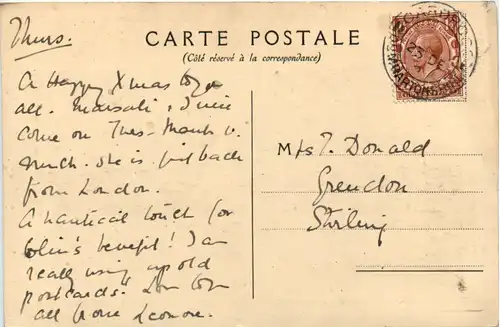 Thurs.
CARTE POSTALE
(Côté réservé à la correspondance)
A Happy Xmas to you
all. Marsali & I will
come on Tues – Thank u.
much. She is just back
from London.
A nautical touch for
Colin's benefit! I am
really using up old
postcards! Love to you
all from Leonore.
Mrs T. Donald
Grendon
Stirling
25 DE